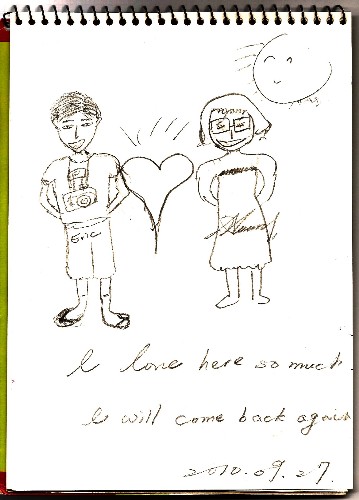 Eric
I love here so much
I will come back again
2010.09.27.